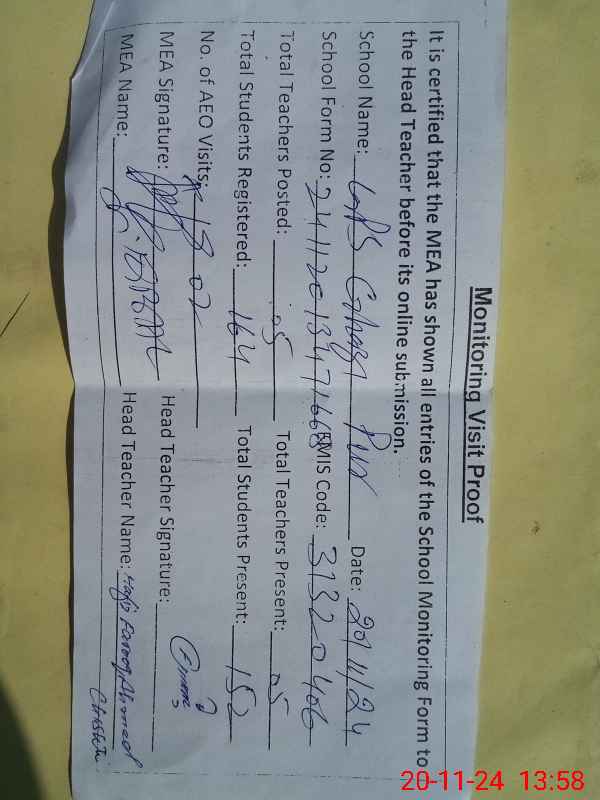 Monitoring Visit Proof
It is certified that the MEA has shown all entries of the School Monitoring Form to
the Head Teacher before its online submission.
School Name: GPS Pur Date: 20/11/24
School Form No: EMIS Code: 31320406
Total Teachers Posted: 05 Total Teachers Present: 05
Total Students Registered: 164 Total Students Present: 152
No. of AEO Visits: 02
MEA Signature: Head Teacher Signature:
MEA Name: Head Teacher Name: Hafiz Farooq Ahmed
20-11-24 13:58